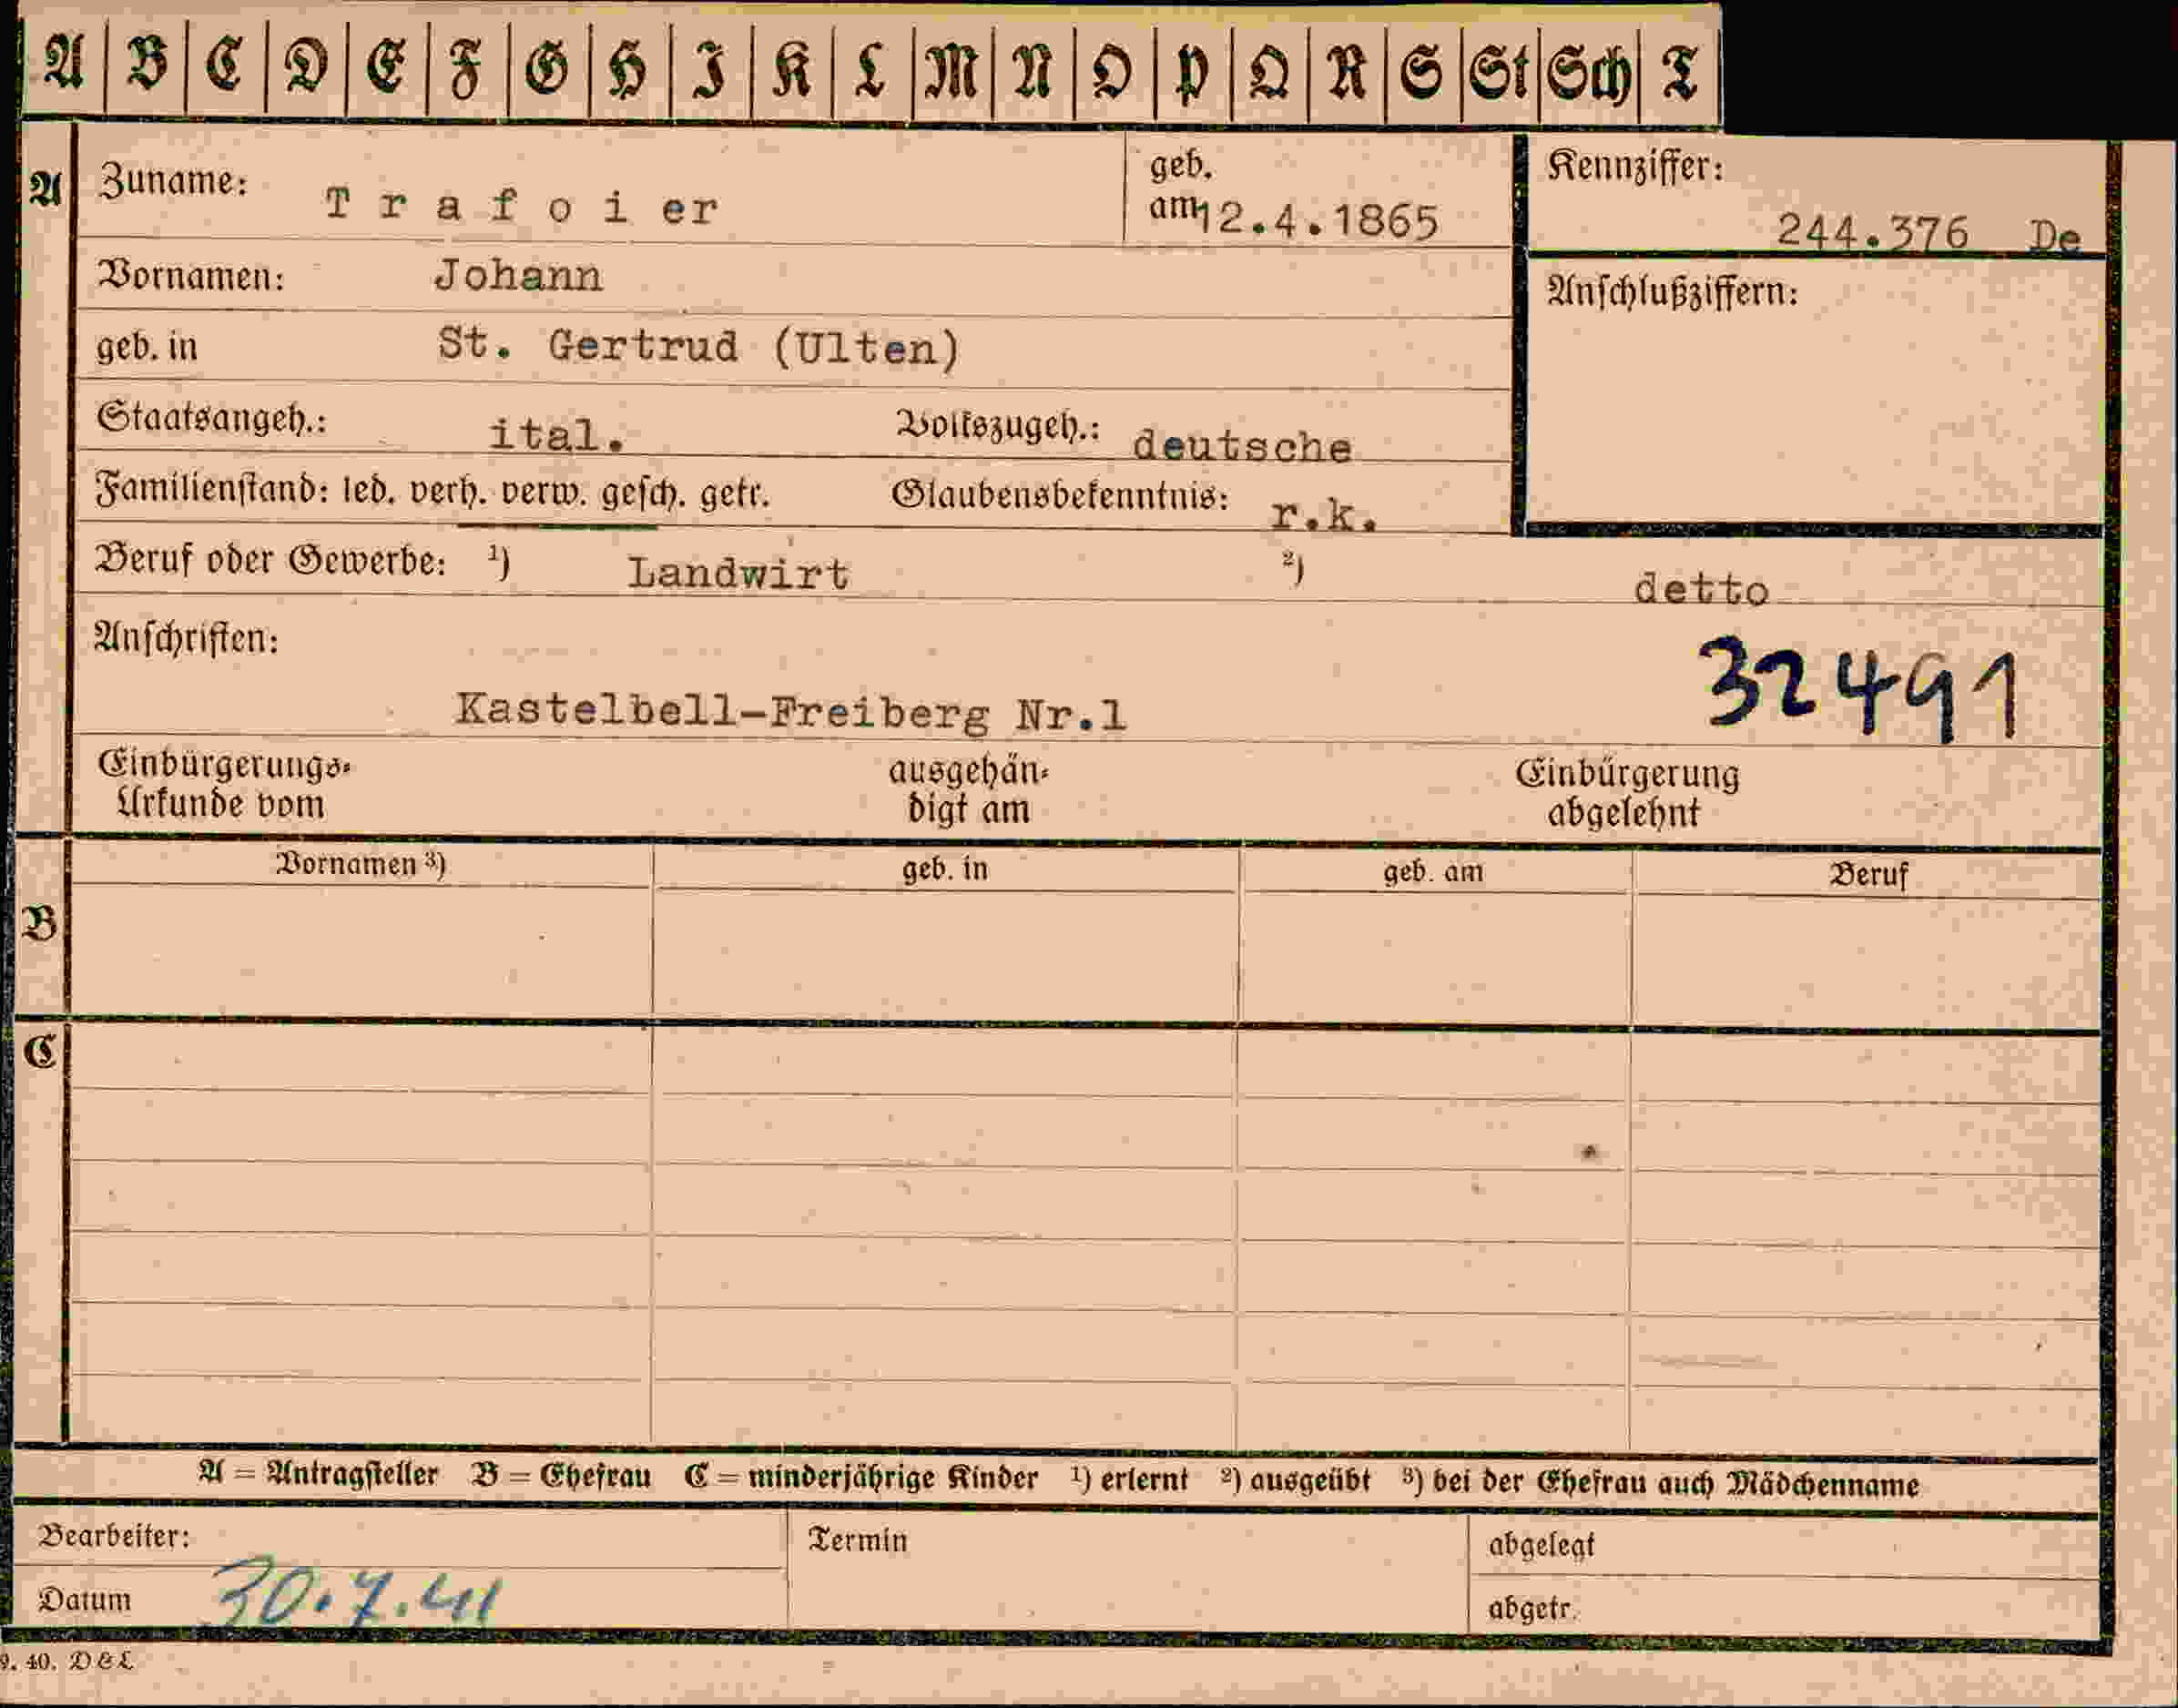 A B C D E F G H I K L M N O P Q R S St Sch T
A Zuname: Trafoier geb. am 12.4.1865 Kennziffer: 244.376 De
Vornamen: Johann Anschlußziffern:
geb. in St. Gertrud (Ulten)
Staatsangeh.: ital. Volkszugeh.: deutsche
Familienstand: led. verh. verw. gesch. getr. Glaubensbekenntnis: r.k.
Beruf oder Gewerbe: 1) Landwirt 2) detto
Anschriften: 32491
Kastelbell-Freiberg Nr.1
Einbürgerungs- ausgehän- Einbürgerung
Urkunde vom digt am abgelehnt
Vornamen 3) geb. in geb. am Beruf
B
C
A = Antragsteller B = Ehefrau C = minderjährige Kinder 1) erlernt 2) ausgeübt 3) bei der Ehefrau auch Mädchenname
Bearbeiter: Termin abgelegt
Datum 30.7.41 abgetr.
9. 40. D & L